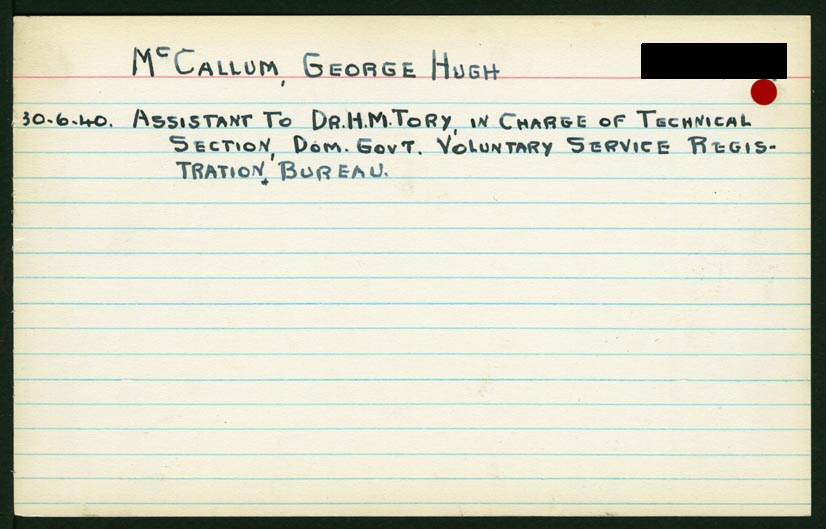 McCallum, George Hugh
30-6-40. Assistant to Dr. H.M. Tory, in charge of Technical
Section, Dom. Govt. Voluntary Service Regis-
tration, Bureau.